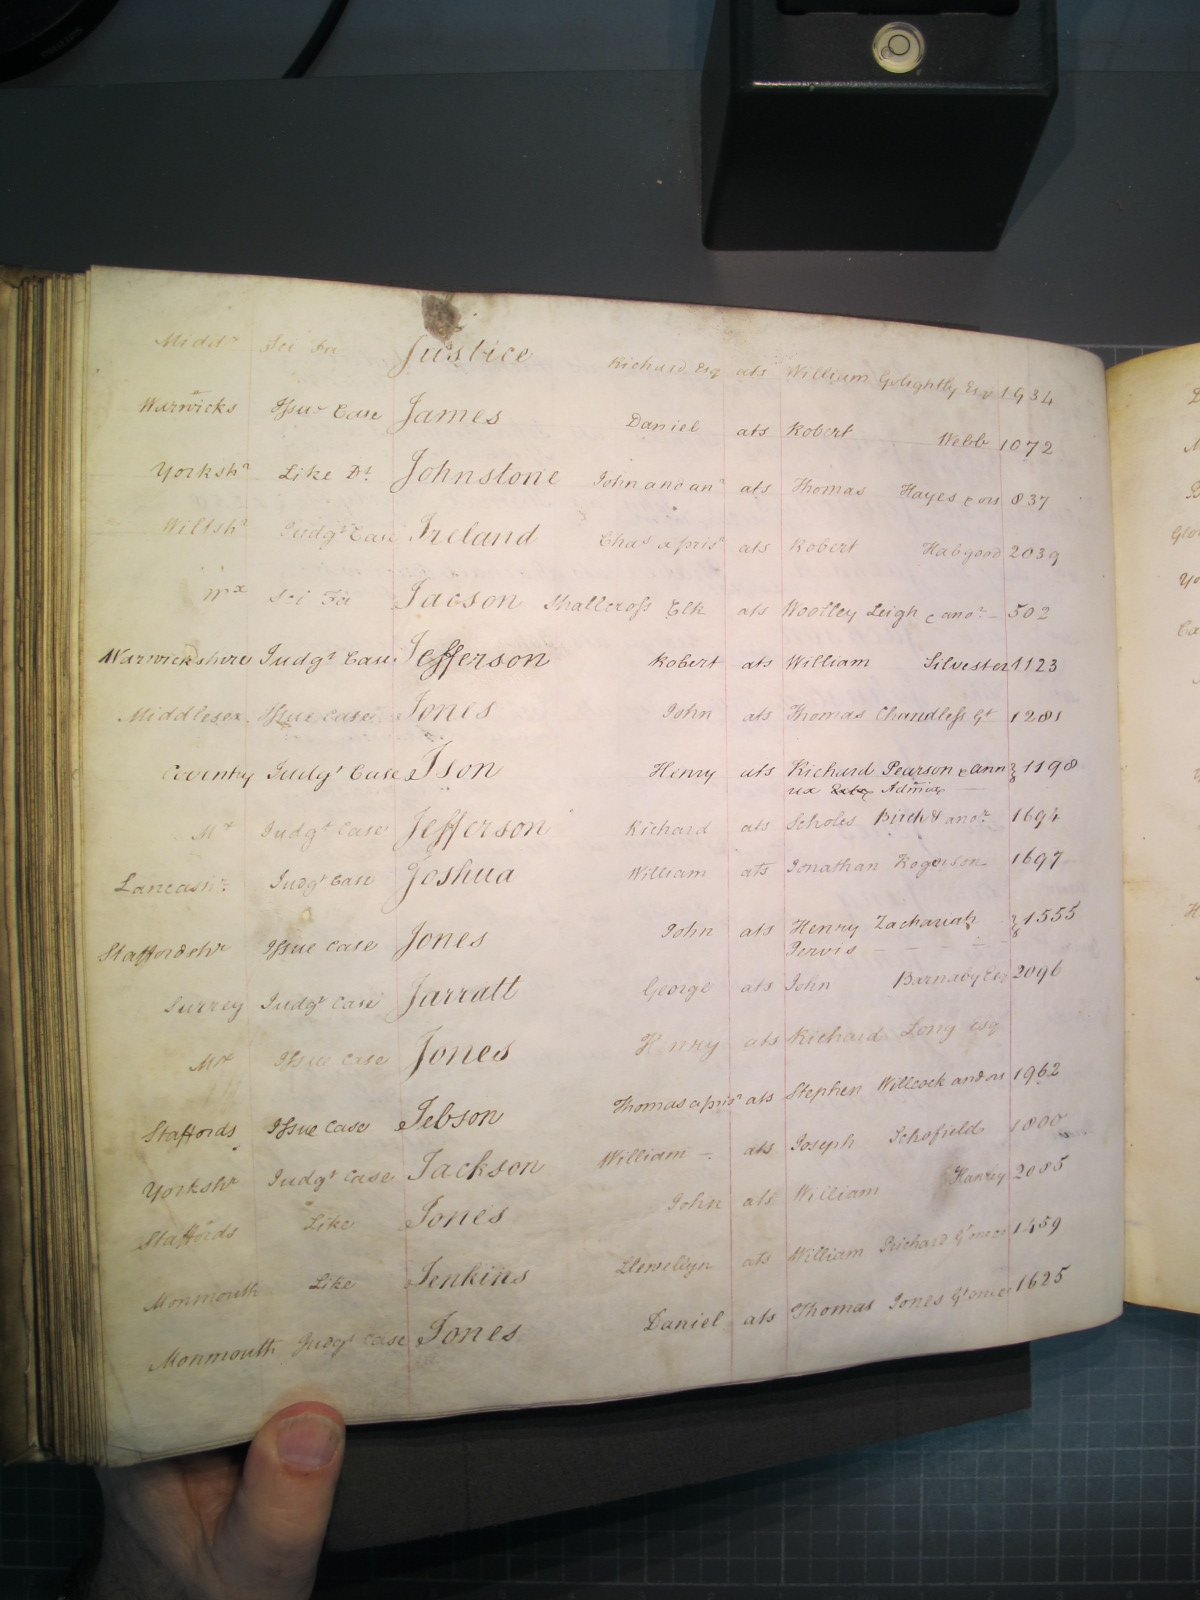 Middx Sci Fa Justice Richard Esq ats William Golightly Esqr 1934
Warwicks Issue Case James Daniel ats Robert Webb 1072
Yorkshr Like Do. Johnstone John and anr ats Thomas Hayes & ors 837
Wiltshr Judgt Case Ireland Chas a prisr ats Robert Habgood 2039
Mx Sci Fa Jacson Shallcross Clk ats Woolley Leigh & anor 502
Warwickshire Judgt Case Jefferson Robert ats William Silvester 1123
Middlesex Issue Case Jones John ats Thomas Chandless Gt 1281
Coventry Judgt Case Ison Henry ats Richard Pearson & ann 1198
ux Admix
Mx Judgt Case Jefferson Richard ats Scholes Birch & anor 1694
Lancashr Judgt Case Joshua William ats Jonathan Rogerson 1697
Staffordshr Issue Case Jones John ats Henry Zachariah 1555
Jervis
Surrey Judgt Case Jarratt George ats John Barnaby Esq 2096
Mx Issue Case Jones Henry ats Richard Long Esq
Staffords Issue Case Jebson Thomas a prisr ats Stephen Willcock and ors 1962
Yorkshr Judgt Case Jackson William ats Joseph Schofield 1800
Staffords Like Jones John ats William Hanley 2085
Monmouth Like Jenkins Llewellyn ats William Prichard Gt one &c 1459
Monmouth Judgt Case Jones Daniel ats Thomas Jones Gt one &c 1625